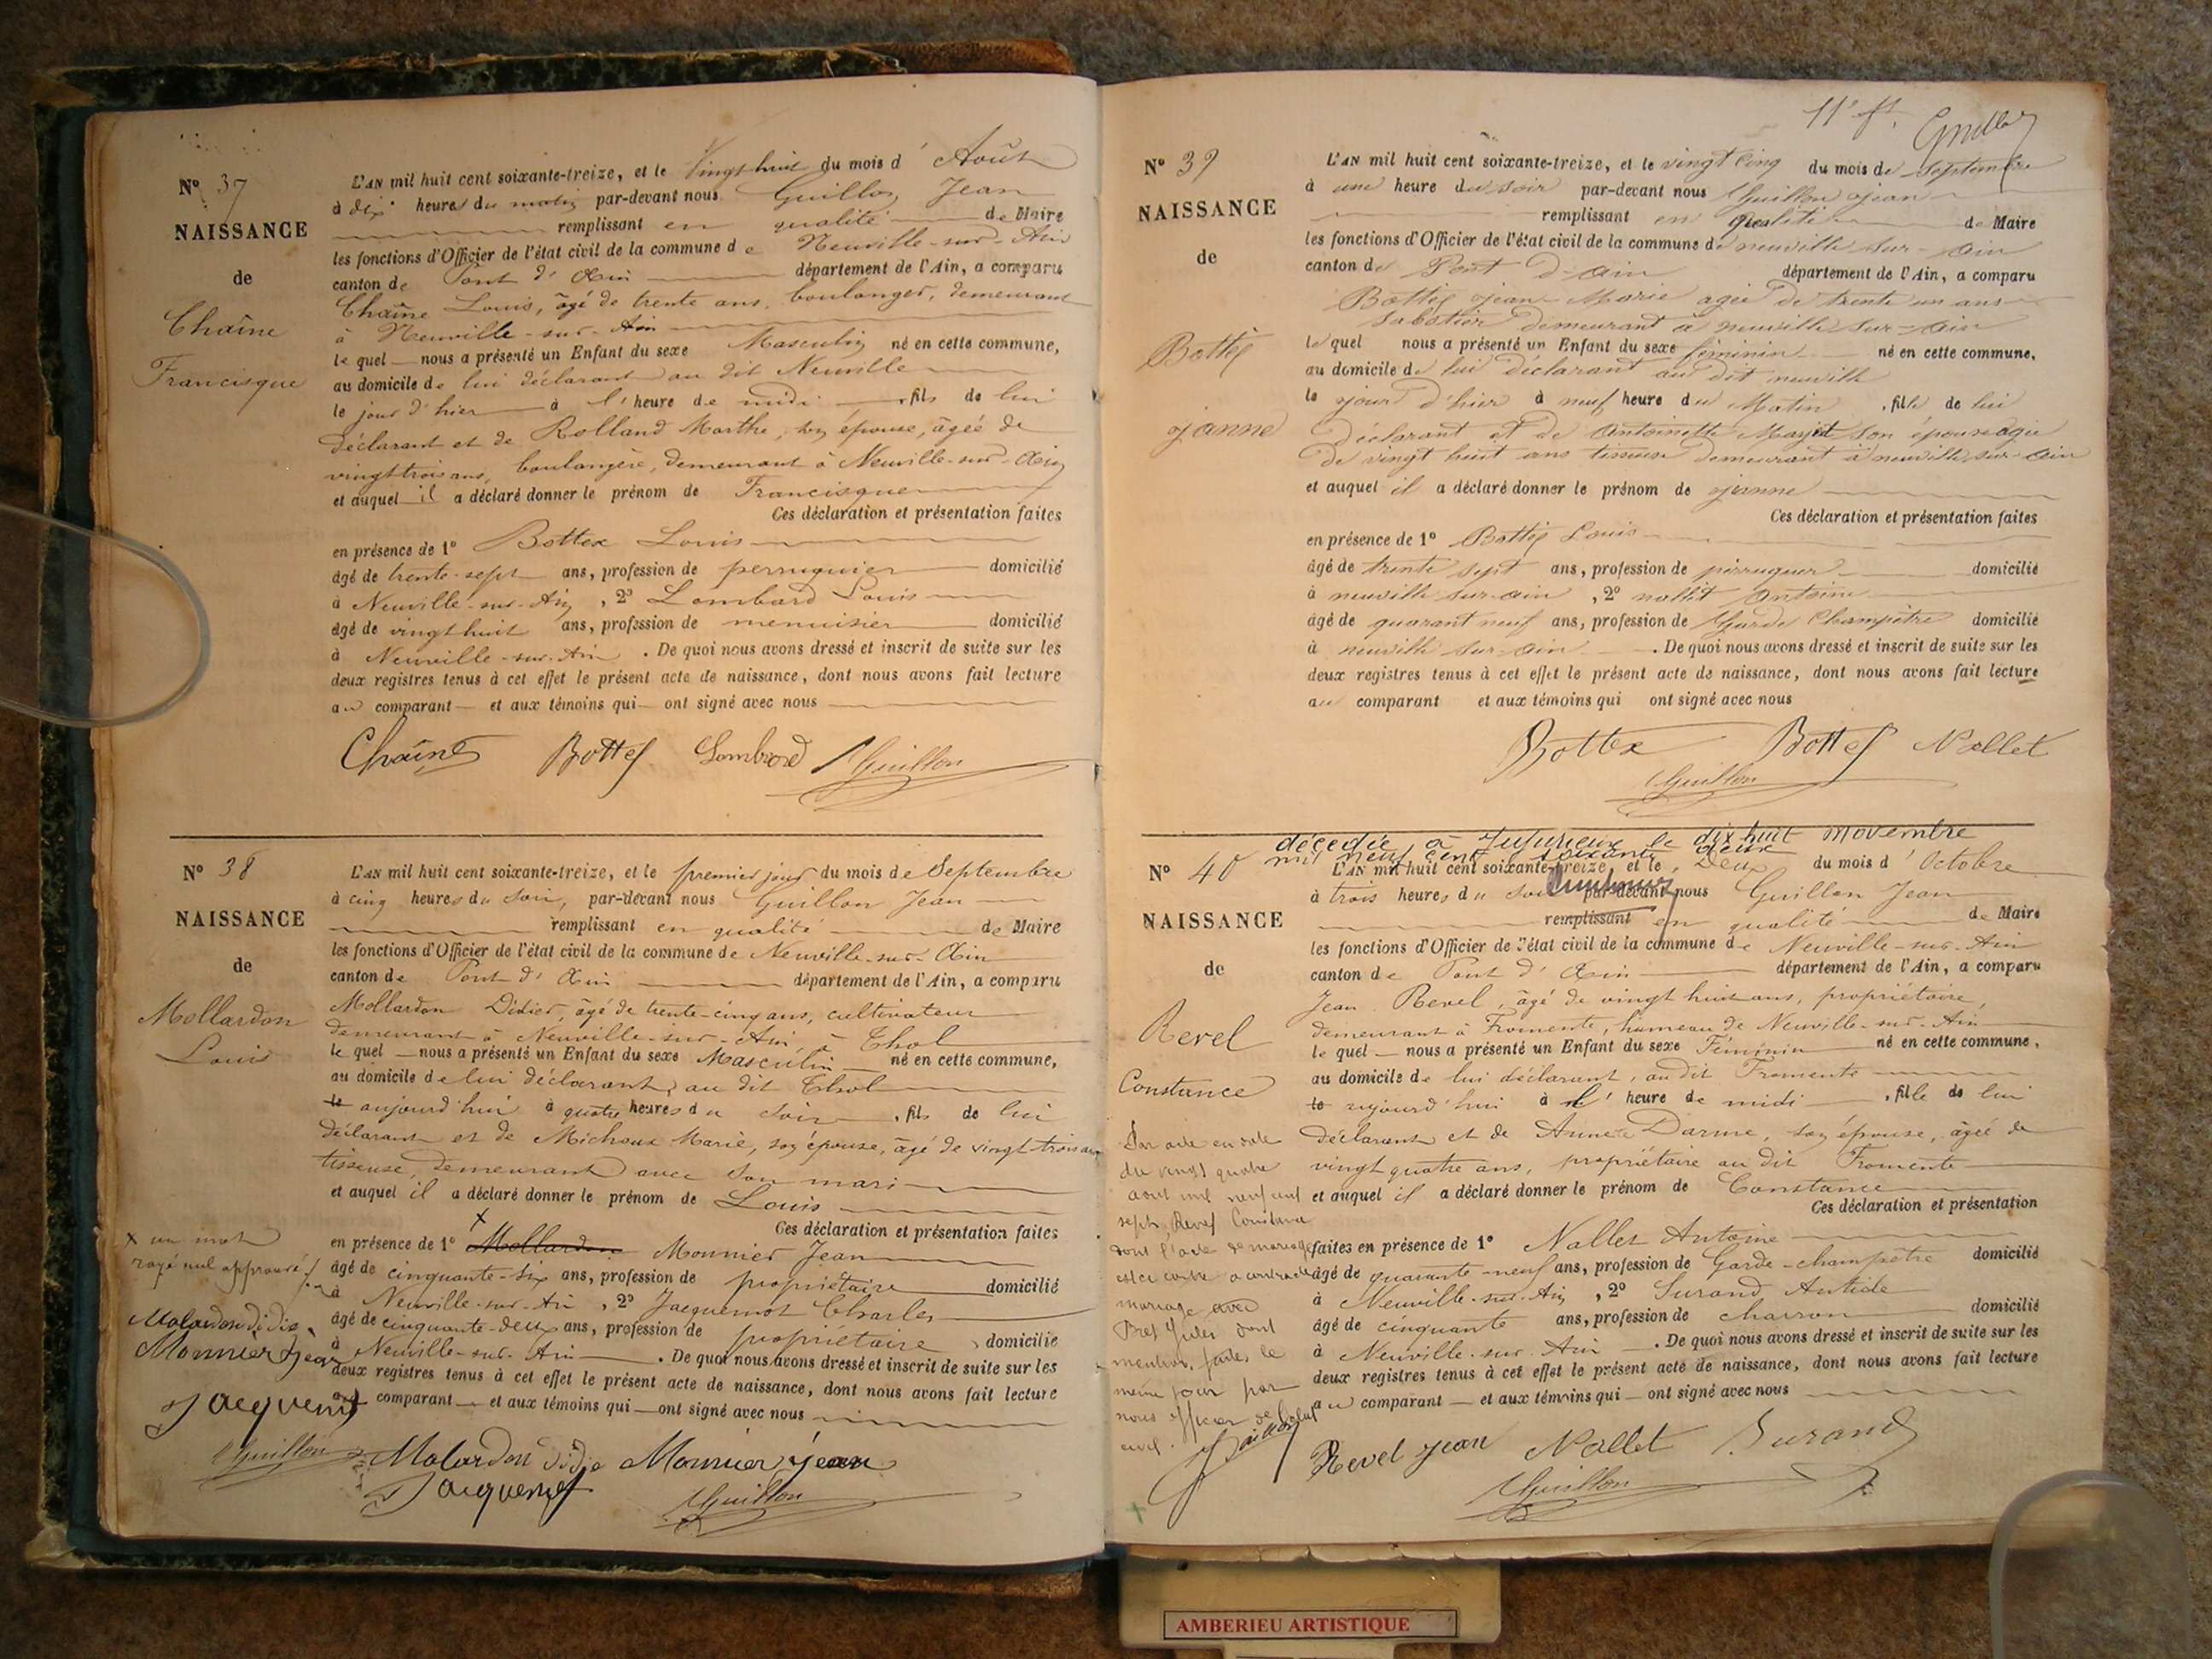 Nº 37
NAISSANCE
de
Chaîne
Francisque
L'AN mil huit cent soixante-treize, et le vingt huit du mois d'Août
à dix heures du matin par-devant nous Guillon Jean
remplissant en qualité de Maire
les fonctions d'Officier de l'état civil de la commune de Neuville-sur-Ain
canton de Pont d'Ain département de l'Ain, a comparu
Chaîne Louis, âgé de trente ans, boulanger, demeurant
à Neuville-sur-Ain
le quel nous a présenté un Enfant du sexe Masculin né en cette commune,
au domicile de lui déclarant au dit Neuville
le jour d'hier à l'heure de midi, fils de lui
déclarant et de Rolland Marthe, son épouse, âgée de
vingt trois ans, boulangère, demeurant à Neuville-sur-Ain
et auquel il a déclaré donner le prénom de Francisque
Ces déclaration et présentation faites
en présence de 1º Bottex Louis
âgé de trente-sept ans, profession de perruquier domicilié
à Neuville-sur-Ain, 2º Lombard Louis
âgé de vingt huit ans, profession de menuisier domicilié
à Neuville-sur-Ain. De quoi nous avons dressé et inscrit de suite sur les
deux registres tenus à cet effet le présent acte de naissance, dont nous avons fait lecture
au comparant et aux témoins qui ont signé avec nous
Chaîne Bottex Lombard Guillon
Nº 38
NAISSANCE
de
Mollardon
Louis
L'AN mil huit cent soixante-treize, et le premier jour du mois de Septembre
à cinq heures du soir, par-devant nous Guillon Jean
remplissant en qualité de Maire
les fonctions d'Officier de l'état civil de la commune de Neuville-sur-Ain
canton de Pont d'Ain département de l'Ain, a comparu
Mollardon Didier, âgé de trente-cinq ans, cultivateur
demeurant à Neuville-sur-Ain, à Thol
le quel nous a présenté un Enfant du sexe Masculin né en cette commune,
au domicile de lui déclarant, au dit Thol
le aujourd'hui à quatre heures du soir, fils de lui
déclarant et de Michoux Marie, son épouse, âgé de vingt trois ans
tisseuse, demeurant avec son mari
et auquel il a déclaré donner le prénom de Louis
Ces déclaration et présentation faites
en présence de 1º Mollardon Monnier Jean
âgé de cinquante-six ans, profession de propriétaire domicilié
à Neuville-sur-Ain, 2º Jacquemot Charles
âgé de cinquante-deux ans, profession de propriétaire domicilié
à Neuville-sur-Ain. De quoi nous avons dressé et inscrit de suite sur les
deux registres tenus à cet effet le présent acte de naissance, dont nous avons fait lecture
au comparant et aux témoins qui ont signé avec nous
x un mot
rayé nul approuvé
Molardon didie
Monnier jean
Jacquemot
Guillon
Molardon didie Monnier jean
Jacquemot Guillon
11e ft.
Nº 39
NAISSANCE
de
Bottex
jeanne
L'AN mil huit cent soixante-treize, et le vingt cinq du mois de septembre
à une heure du soir par-devant nous Guillon jean
remplissant en qualité de Maire
les fonctions d'Officier de l'état civil de la commune de neuville sur-ain
canton de Pont d'ain département de l'Ain, a comparu
Bottex jean-Marie agée de trente un ans
sabotier demeurant à neuville sur-ain
le quel nous a présenté un Enfant du sexe féminin né en cette commune,
au domicile de lui déclarant au dit neuville
le jour d'hier à neuf heure du Matin, fille de lui
déclarant et de antoinette Mayet son épouse agée
de vingt huit ans tisseuse demeurant à neuville sur-ain
et auquel il a déclaré donner le prénom de jeanne
Ces déclaration et présentation faites
en présence de 1º Bottex Louis
âgé de trente sept ans, profession de perruquer domicilié
à neuville sur-ain, 2º nallet antoine
âgé de quarant neuf ans, profession de Garde Champêtre domicilié
à neuville sur-ain. De quoi nous avons dressé et inscrit de suite sur les
deux registres tenus à cet effet le présent acte de naissance, dont nous avons fait lecture
au comparant et aux témoins qui ont signé avec nous
Bottex Bottex Nallet
Guillon
décédée à Jujurieux le dix huit novembre
mil neuf cent soixante deux
Nº 40
NAISSANCE
de
Revel
Constance
L'AN mil huit cent soixante-treize, et le Deux du mois d'Octobre
à trois heures du soir par-devant nous Guillon Jean
remplissant en qualité de Maire
les fonctions d'Officier de l'état civil de la commune de Neuville-sur-Ain
canton de Pont d'Ain département de l'Ain, a comparu
Jean Revel, âgé de vingt huit ans, propriétaire,
demeurant à Fromente, hameau de Neuville-sur-Ain
le quel nous a présenté un Enfant du sexe Féminin né en cette commune,
au domicile de lui déclarant, au dit Fromente
le aujourd'hui à l'heure de midi, fille de lui
déclarant et de Annette Darme, son épouse, âgée de
vingt quatre ans, propriétaire au dit Fromente
et auquel il a déclaré donner le prénom de Constance
Ces déclaration et présentation
faites en présence de 1º Nallet Antoine
âgé de quarante-neuf ans, profession de Garde-champêtre domicilié
à Neuville-sur-Ain, 2º Durand Antide
âgé de cinquante ans, profession de charron domicilié
à Neuville-sur-Ain. De quoi nous avons dressé et inscrit de suite sur les
deux registres tenus à cet effet le présent acte de naissance, dont nous avons fait lecture
au comparant et aux témoins qui ont signé avec nous
Par acte en date
du vingt quatre
aout mil neuf cent
sept, Revel Constance
dont l'acte de naissance
est ci contre a contracté
mariage avec
Pret Jules dont
mention faite le
même jour par
nous officier de l'état
civil.
Revel jean Nallet Durand
Guillon
AMBERIEU ARTISTIQUE